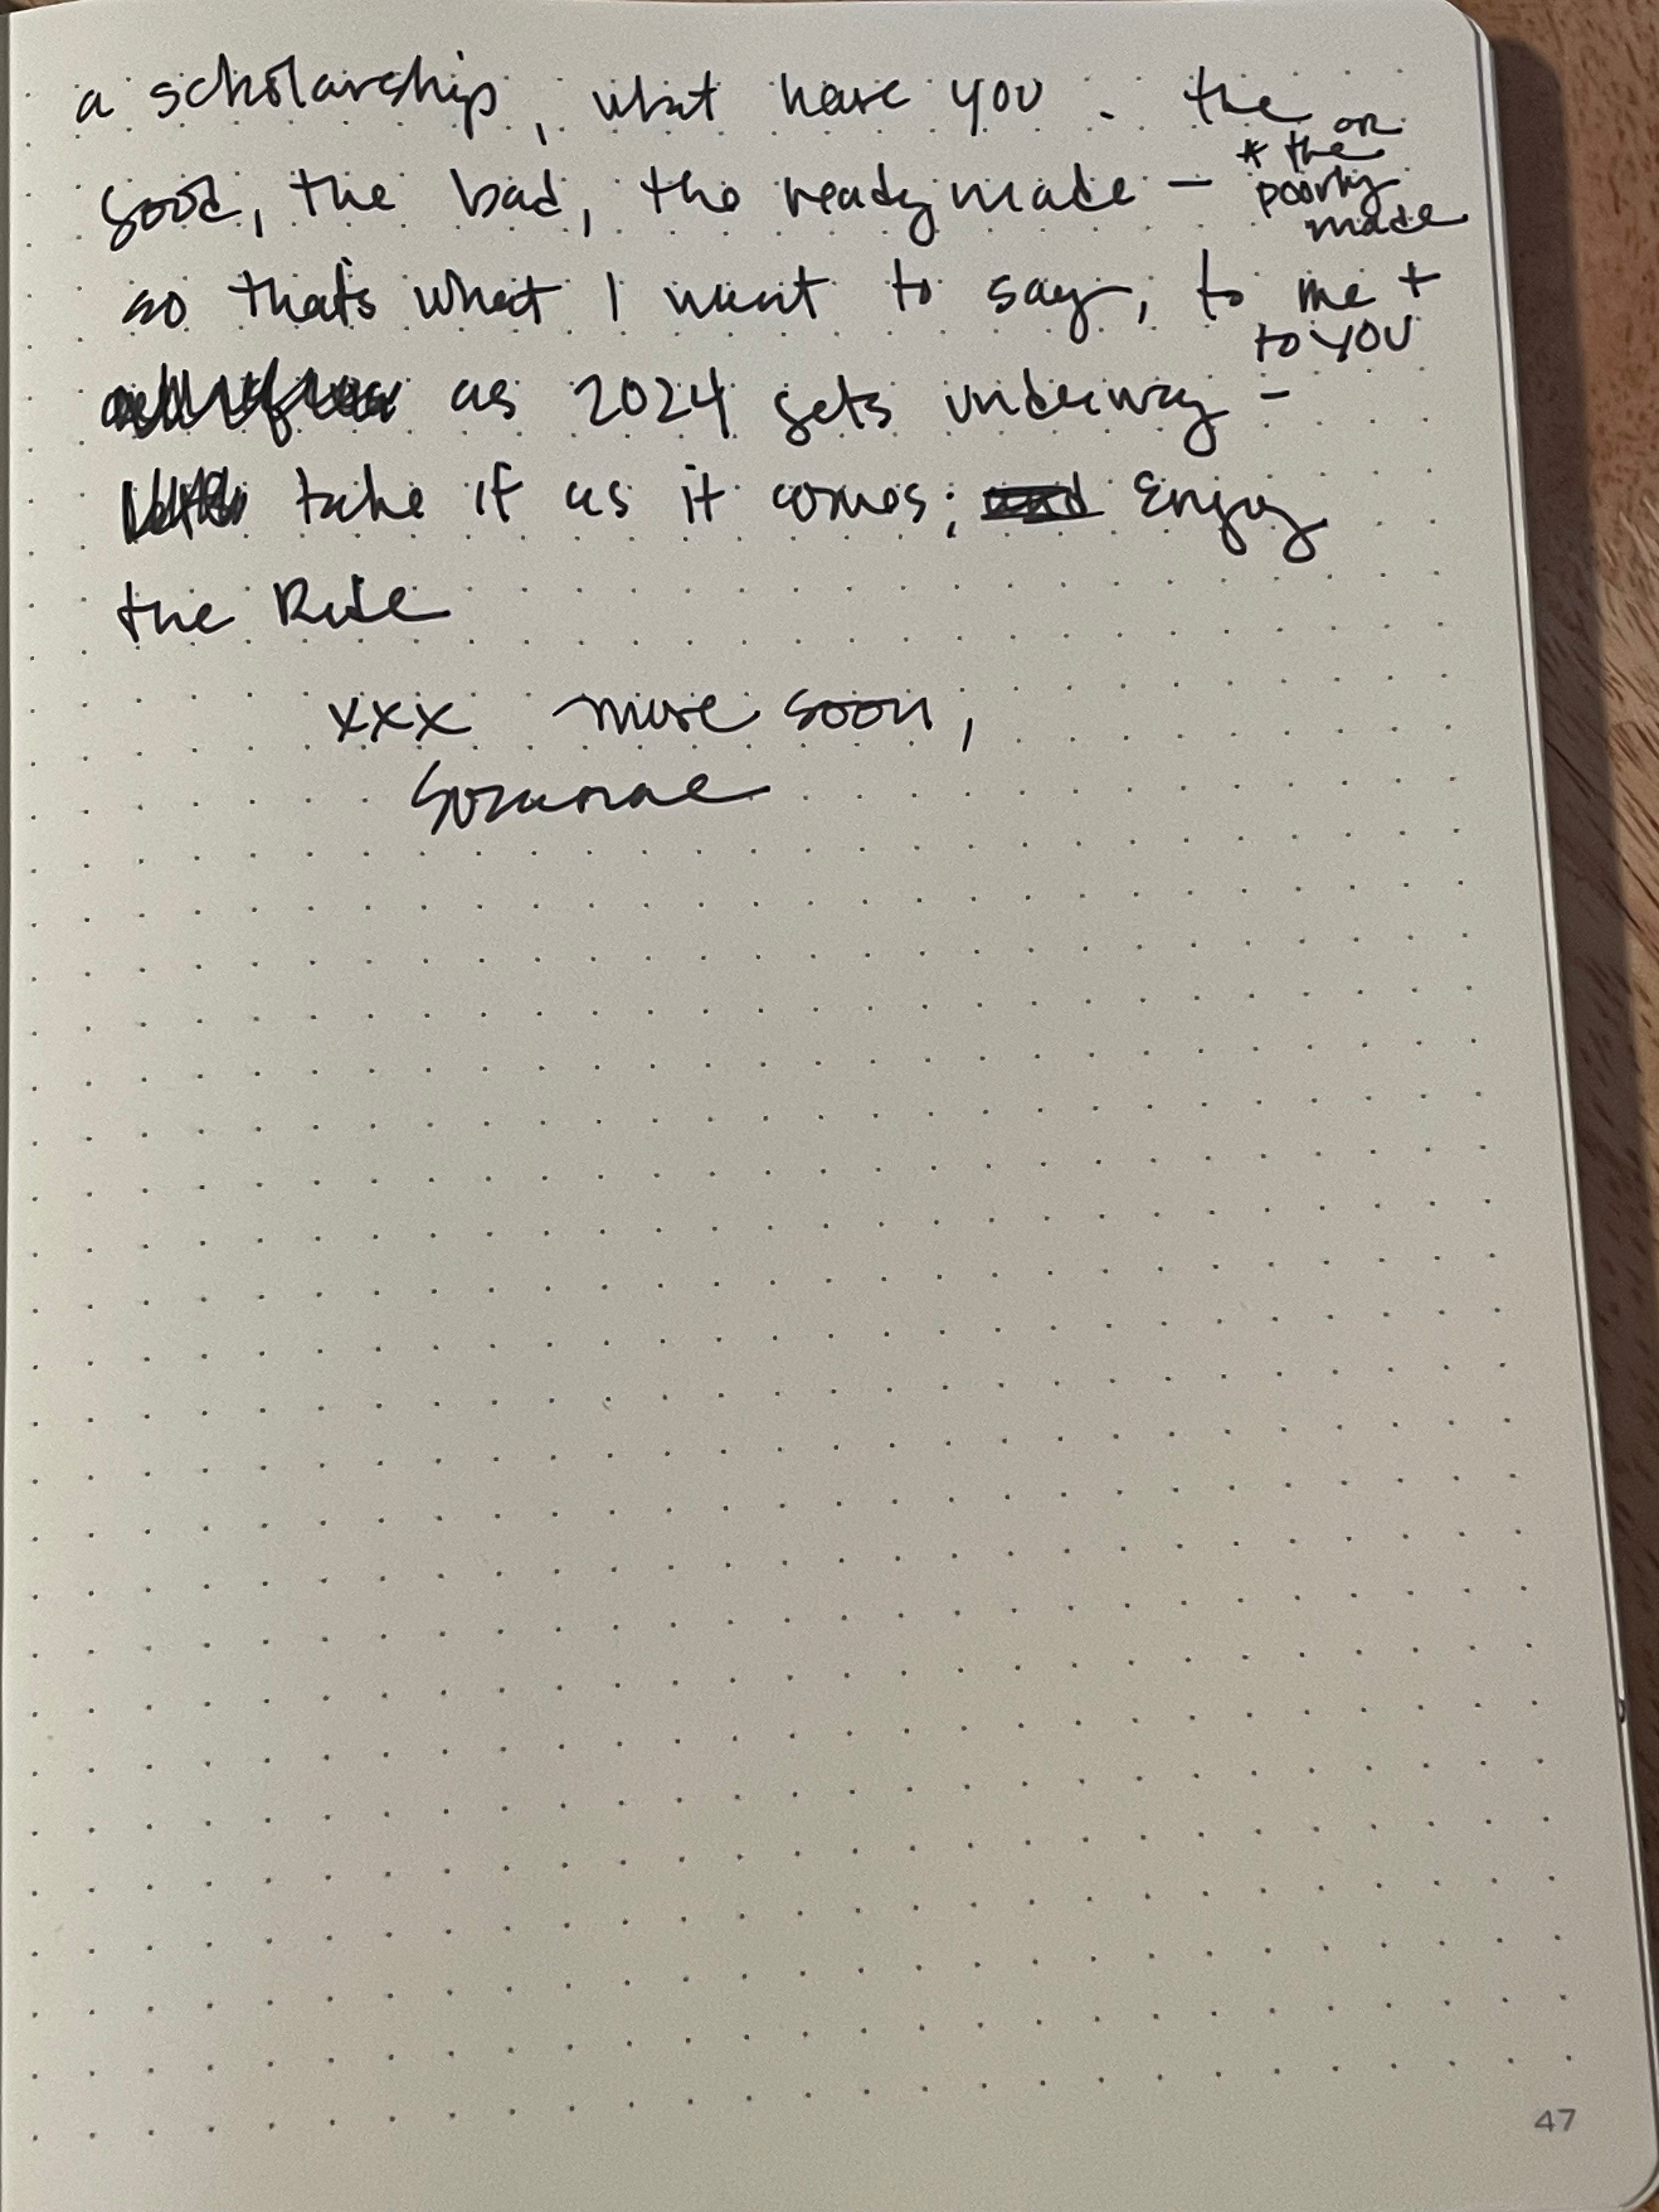 a scholarship, what have you. the
good, the bad, the readymade — * or the poorly made
so that's what I want to say, to me + to YOU
as 2024 gets underway -
take it as it comes; and Enjoy
the Ride
xxx more soon,
Suzanne
47